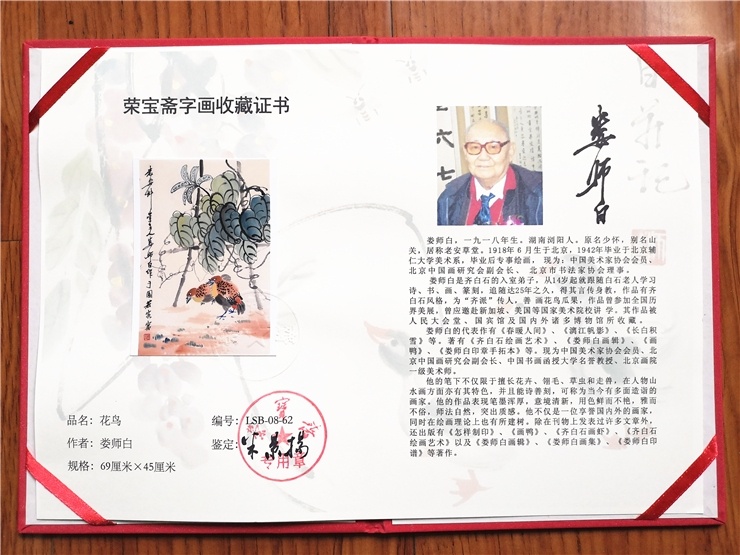 荣宝斋字画收藏证书
品名：花鸟
编号：LSB-08-62
作者：娄师白
鉴定：米景扬
规格：69厘米×45厘米
专用章
娄师白
娄师白，一九一八年生，湖南浏阳人。原名少怀，别名山
关，居称老安草堂。1918年6月生于北京，1942年毕业于北京辅
仁大学美术系，毕业后专事绘画， 现为：中国美术家协会会员、
北京中国画研究会副会长、 北京市书法家协会理事。
娄师白是齐白石的入室弟子，从14岁起就跟随白石老人学习
诗、书、画、篆刻，追随达25年之久，得其言传身教，作品有齐
白石风格，为“齐派”传人，善 画花鸟瓜果，作品曾参加全国历
界美展，曾应邀赴新加坡、美国等国家美术院校讲 学。其作品被
人民大会堂、国宾馆及国内外诸多博物馆所收藏。
娄师白的代表作有《春暖人间》、《漓江帆影》、《长白积
雪》等。著有《齐白石绘画艺术》、《娄师白画辑》、《画
鸭》、《娄师白印章手拓本》等。现为中国美术家协会会员、北
京中国画研究会副会长、中国书画函授大学名誉教授、北京画院
一级美术师。
他的笔下不仅限于擅长花卉、翎毛、草虫和走兽，在人物山
水画方面亦有其特色，并且能诗善刻，可称为当今有多面造诣的
画家。他的作品表现笔墨浑厚，意境清新，用色鲜而不艳，雅而
不俗，师法自然，突出质感。他不仅是一位享誉国内外的画家，
同时在绘画理论上也有所建树。除在刊物上发表过许多文章外，
还出版有《怎样刻印》、《画鸭》、《齐白石画虾》、《齐白石
绘画艺术》以及《娄师白画辑》、《娄师白画集》、《娄师白印
谱》等著作。